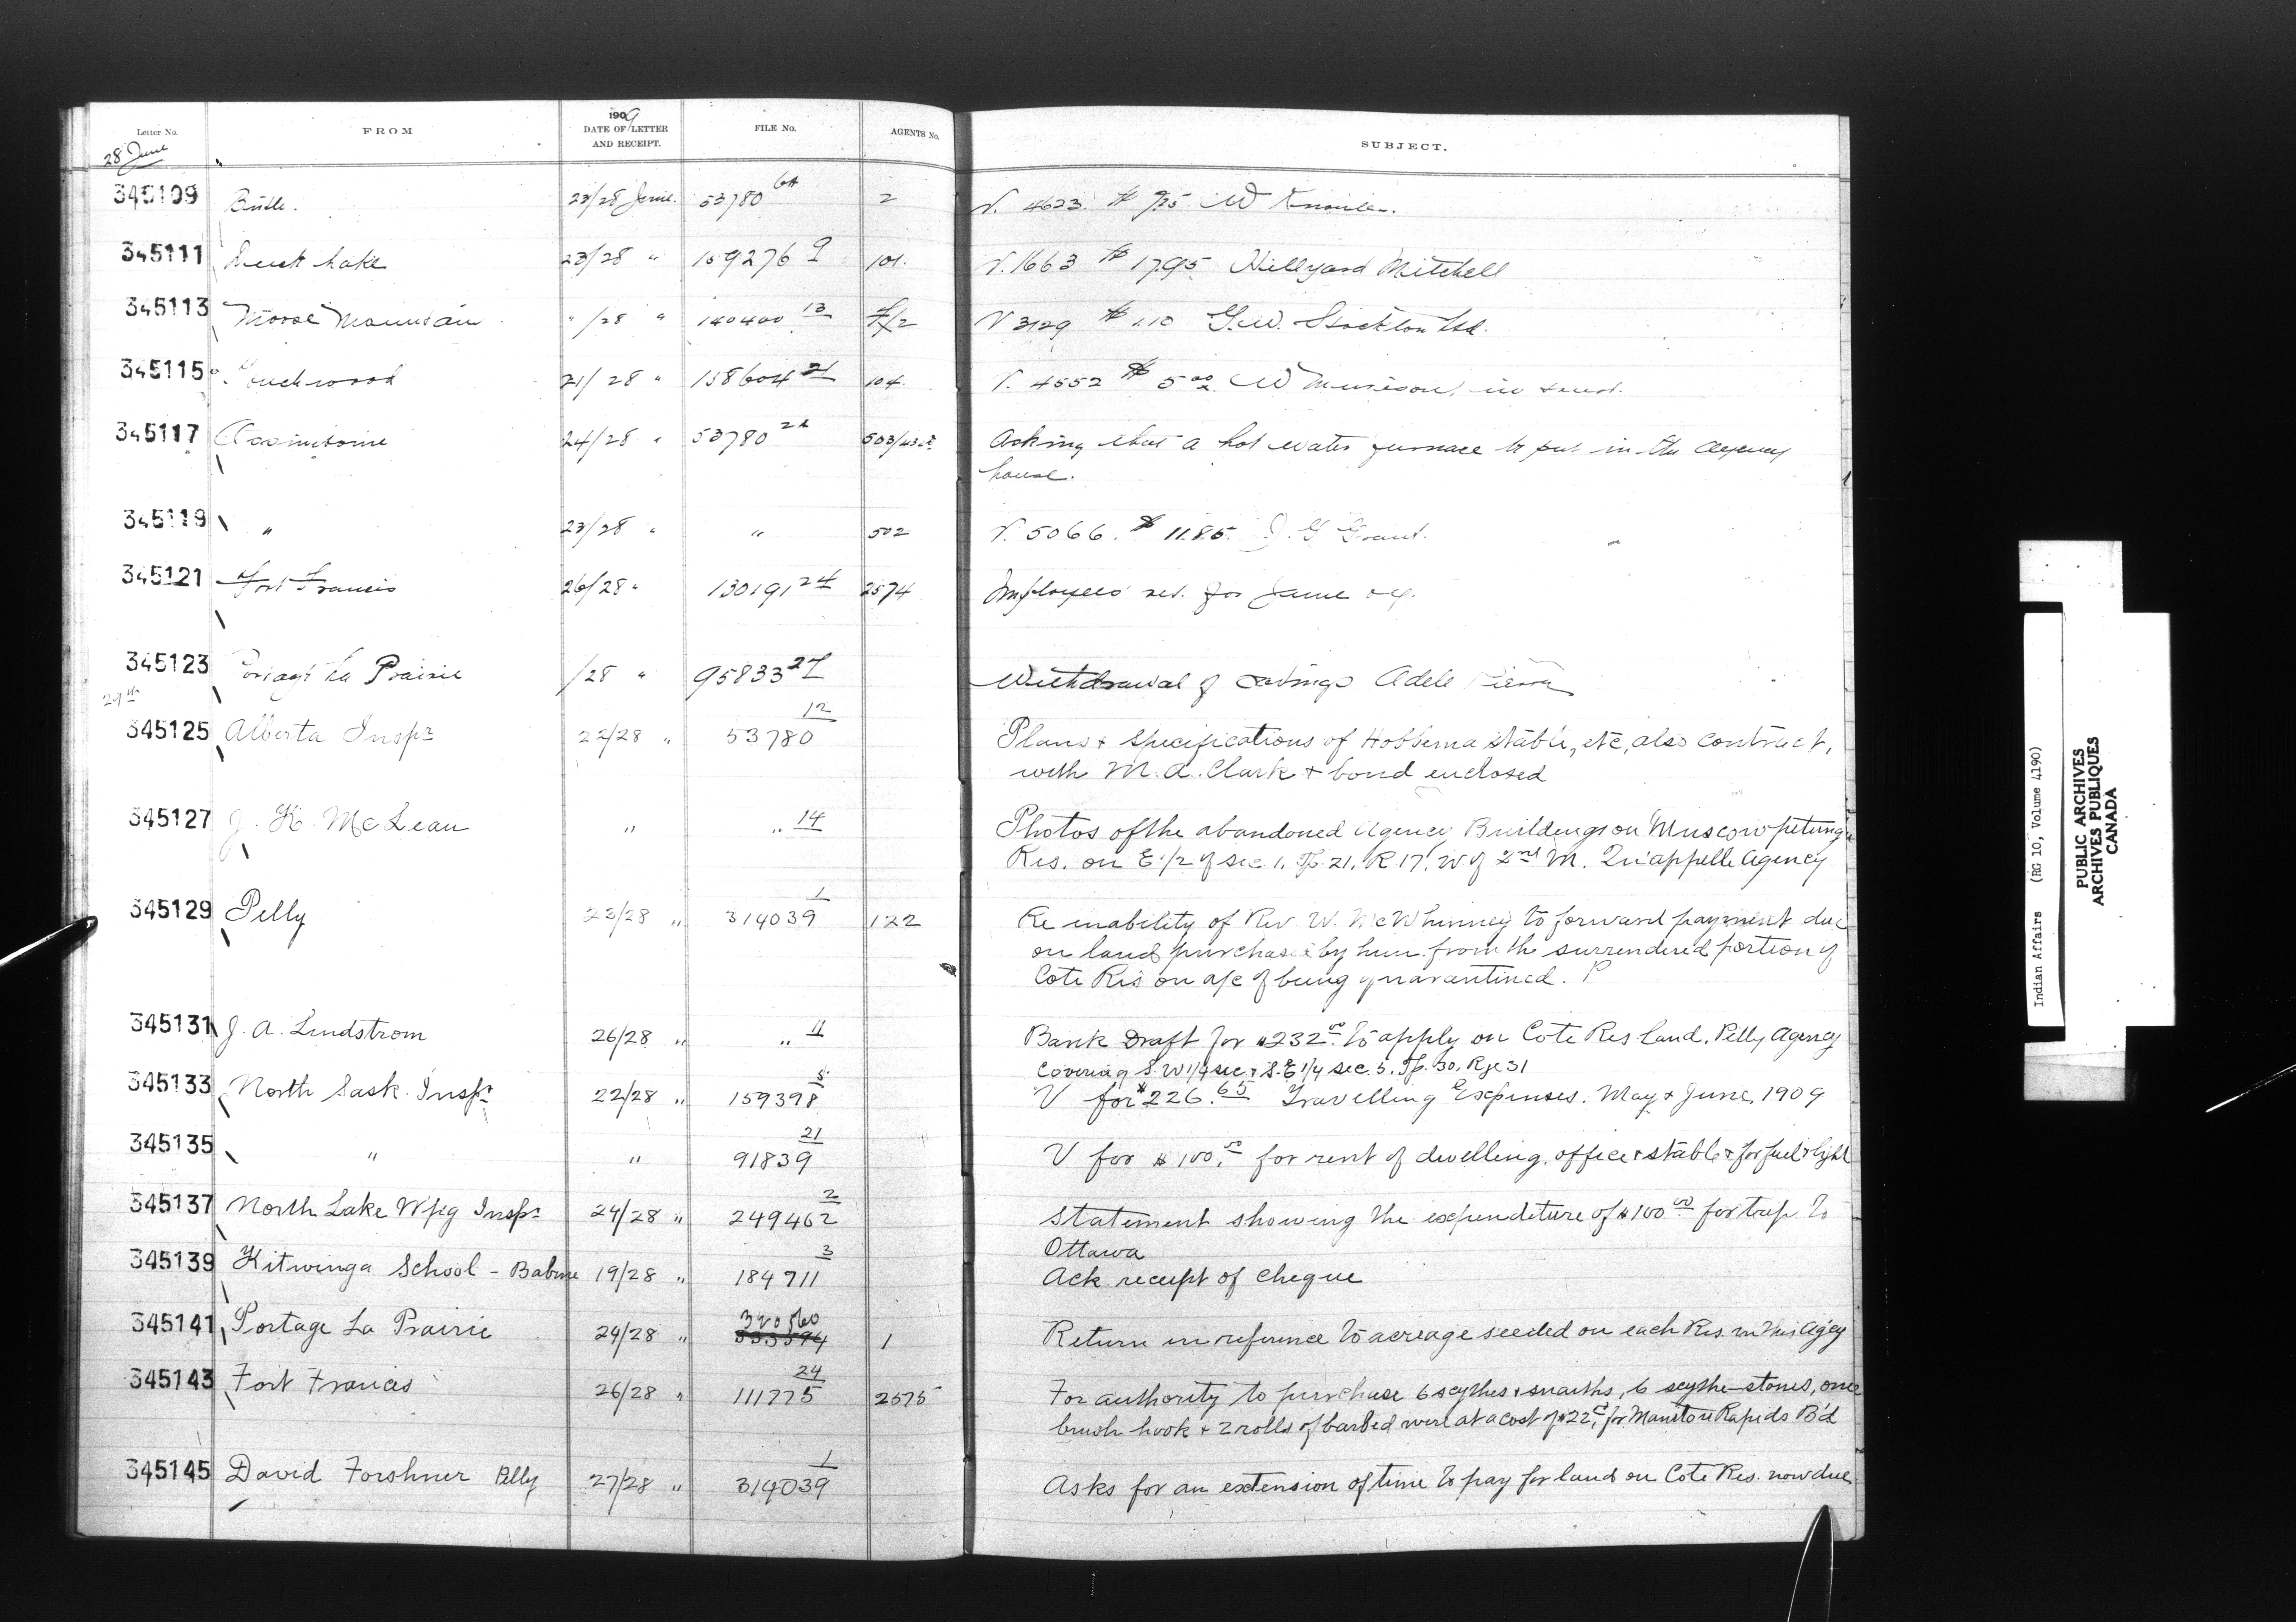 Letter No. FROM 1909 DATE OF LETTER AND RECEIPT. FILE No. AGENTS No. SUBJECT.
28 June
345109 23/28 June 53780 64 2 V. 4623. $ W
345111 Duck Lake 23/28 " 159276 9 101. V. 1663 $ 17.95 Hillyard Mitchell
345113 Moose Mountain " /28 " 140400 13 V 3129 $ 1.10 G.W. Stockton Ltd.
345115 Touchwood 21/28 " 158604 21 104. V. 4552 $ 5.00 W Murison, in trust.
345117 Assiniboine 24/28 " 53780 Asking that a hot water furnace be put in the agency
house.
345119 " 23/28 " " 502 V. 5066. $ 11.85. J. G Grant.
345121 Fort Francis 26/28 " 130191 24 2574 Employees ret. for June
345123 Portage La Prairie /28 " 95833 Withdrawal of savings Adele
29th
345125 Alberta Inspr 22/28 " 53780 12 Plans & specifications of Hobbema stable, etc, also contract,
with M. A. Clark & bond enclosed
345127 J. K. McLean " " 14 Photos of the abandoned Agency Buildings on Muscowpetung
Res. on E 1/2 of sec 1. Tp. 21. R 17. W of 2nd M. Qu'appelle Agency
345129 Pelly 23/28 " 314039 1 122 Re inability of Rev W. McWhinney to forward payment due
on land purchased by him from the surrendered portion of
Cote Res on a/c of being quarantined. P
345131 J. A. Lindstrom 26/28 " " 11 Bank Draft for $232.00 to apply on Cote Res Land. Pelly Agency
Covering S.W 1/4 sec & S.E 1/4 sec. 5. Tp. 30. Rge 31
345133 North Sask. Inspr 22/28 " 159398 V for $226.65 Travelling Expenses. May & June 1909
345135 " " 91839 21 V for $100.00 for rent of dwelling, office & stable & for fuel & light
345137 North Lake Wpg Inspr 24/28 " 249462 2 Statement showing the expenditure of $100.00 for trip to
Ottawa
345139 Kitwinga School - Babine 19/28 " 184711 3 Ack receipt of cheque
345141 Portage La Prairie 24/28 " 320560 1 Return in reference to acreage seeded on each Res. in this Agcy
345143 Fort Francis 26/28 " 111775 24 2575 For authority to purchase 6 scythes & snaiths, 6 scythe-stones, one
brush hook & 2 rolls of barbed wire at a cost of $22. for Manitou Rapids B'd
345145 David Forshner Pelly 27/28 " 314039 1 Asks for an extension of time to pay for land on Cote Res. now due
Indian Affairs (RG 10, Volume 4190)
PUBLIC ARCHIVES
ARCHIVES PUBLIQUES
CANADA